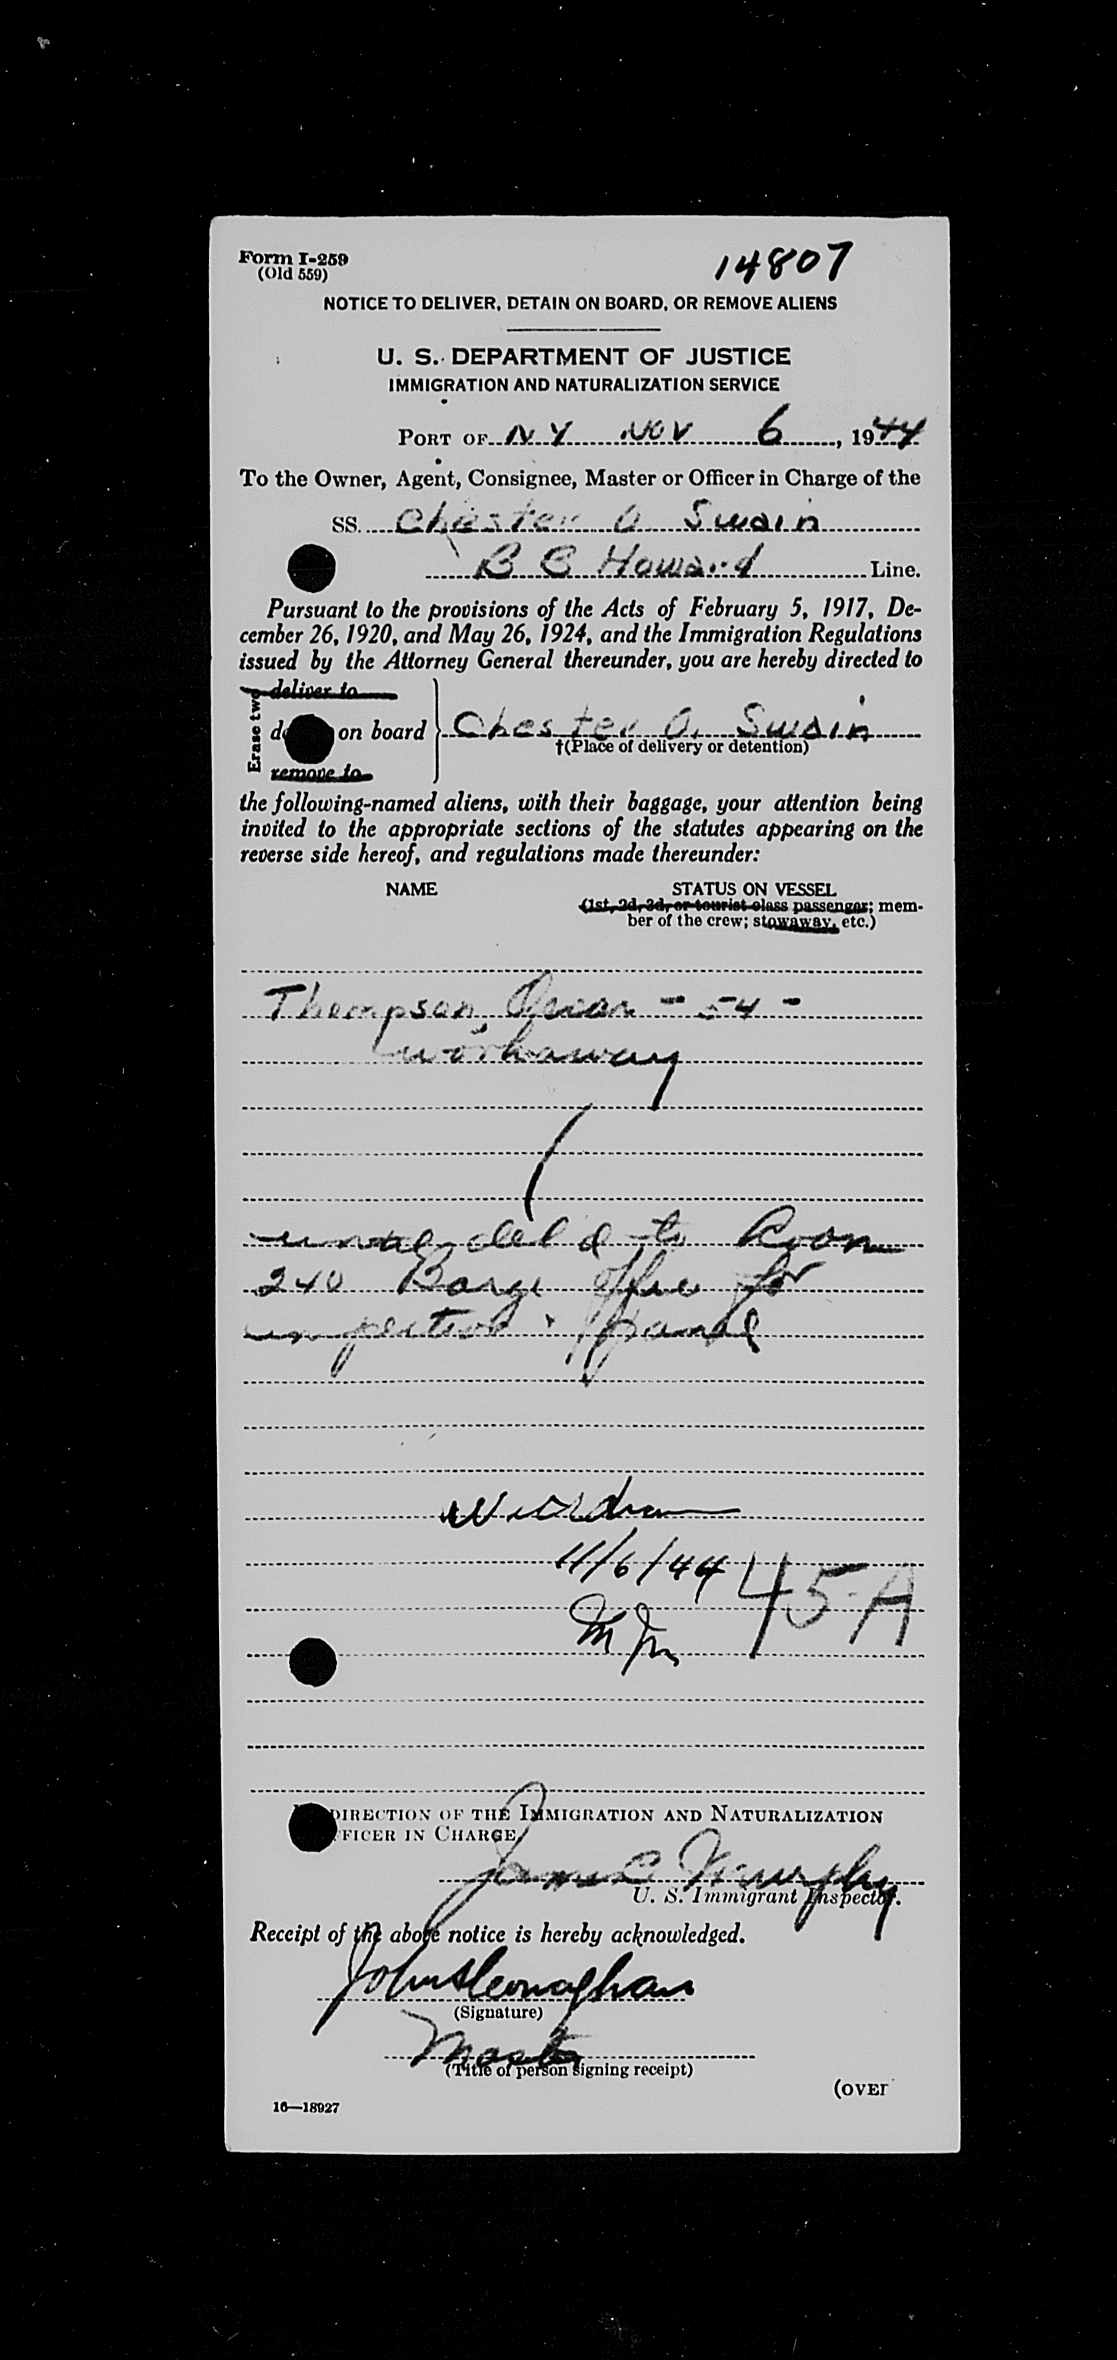 Form I-259
(Old 559)
14807
NOTICE TO DELIVER, DETAIN ON BOARD, OR REMOVE ALIENS
U. S. DEPARTMENT OF JUSTICE
IMMIGRATION AND NATURALIZATION SERVICE
PORT OF N Y NOV 6, 1944
To the Owner, Agent, Consignee, Master or Officer in Charge of the
SS. Chester A Swain
B B Howard Line.
Pursuant to the provisions of the Acts of February 5, 1917, De-
cember 26, 1920, and May 26, 1924, and the Immigration Regulations
issued by the Attorney General thereunder, you are hereby directed to
Erase two
deliver to
on board Chester A. Swain
†(Place of delivery or detention)
remove to
the following-named aliens, with their baggage, your attention being
invited to the appropriate sections of the statutes appearing on the
reverse side hereof, and regulations made thereunder:
NAME STATUS ON VESSEL
(1st, 2d, 3d, or tourist class passenger; mem-
ber of the crew; stowaway, etc.)
Thompson, - 54 -
workaway
until del'd to Room
240 Barge Office for
inspection
11/6/44 45-A
DIRECTION OF THE IMMIGRATION AND NATURALIZATION
FFICER IN CHARGE
James Murphy
U. S. Immigrant Inspector.
Receipt of the above notice is hereby acknowledged.
John
(Signature)
Master
(Title of person signing receipt)
(OVER
16—18927